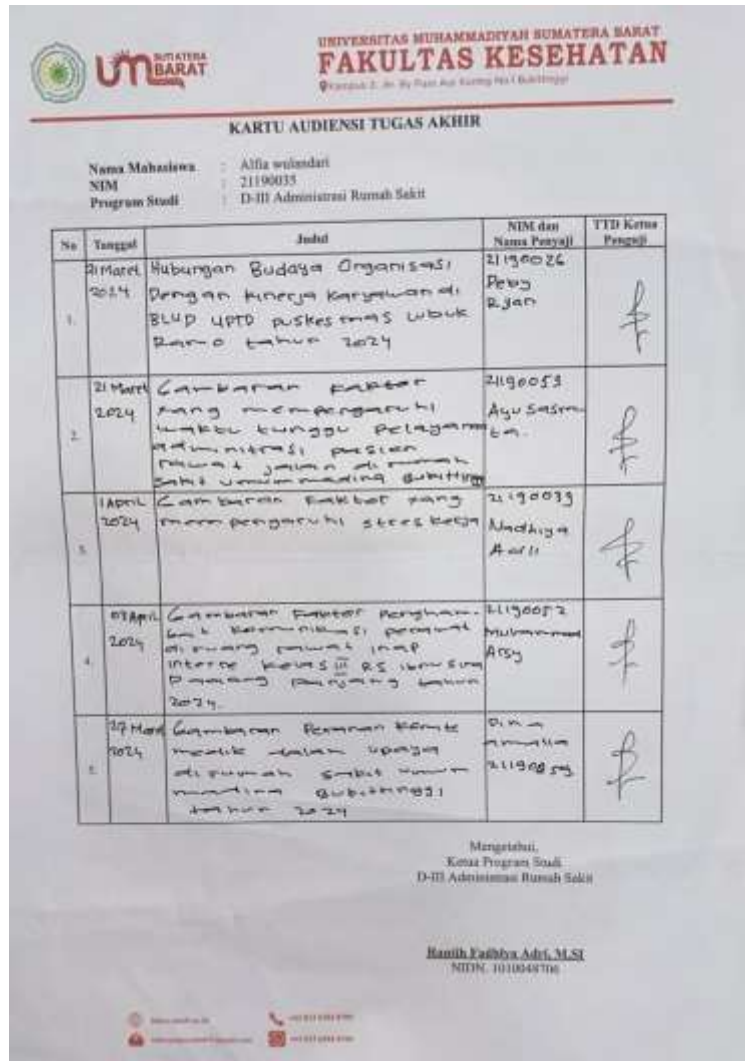 UNIVERSITAS MUHAMMADIYAH SUMATERA BARAT
FAKULTAS KESEHATAN
UM SUMATERA BARAT
KARTU AUDIENSI TUGAS AKHIR
Nama Mahasiswa : Alfia wulandari
NIM : 21190035
Program Studi : D-III Administrasi Rumah Sakit
No Tanggal Judul NIM dan Nama Penyaji TTD Ketua Penguji
1. 21 Maret 2024
Hubungan Budaya Organisasi
Dengan kinerja karyawan di
BLUD UPTD puskesmas Lubuk
tahun 2024
21190026
Peby
Ryan
2. 21 Maret 2024
Gambaran Faktor
yang mempengaruhi
waktu tunggu pelayanan
administrasi pasien
rawat jalan di rumah
sakit umum madina Bukitting
21190053
3. 1 April 2024
Gambaran Faktor yang
mempengaruhi stres kerja
21190039
Nadhiya
4. 03 April 2024
Gambaran Faktor Pengham-
bat komunikasi perawat
di ruang rawat inap
interne kelas III RS ibnu sina
Padang panjang tahun
2024.
21190052
Muhammad
Arsy
5. 27 Maret 2024
Gambaran Peranan komite
medik dalam upaya
di rumah sakit umum
madina Bukittinggi
tahun 2024
Mengetahui,
Ketua Program Studi
D-III Administrasi Rumah Sakit
Fadhiya Adri, M.SI
NIDN. 1010048706